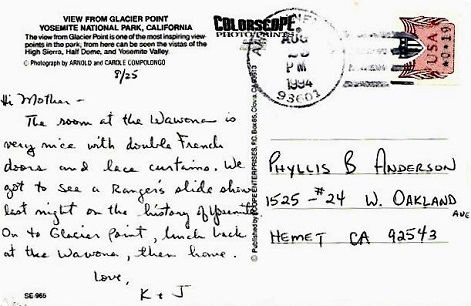 VIEW FROM GLACIER POINT
YOSEMITE NATIONAL PARK, CALIFORNIA
The view from Glacier Point is one of the most inspiring view-
points in the park, from here can be seen the vistas of the
High Sierra, Half Dome, and Yosemite Valley.
© Photograph by ARNOLD and CAROLE COMPOLONGO
8/25
Hi Mother -
The room at the Wawona is
very nice with double French
doors and lace curtains. We
got to see a Ranger's slide show
last night on the history of Yosemite
On to Glacier Point, lunch back
at the Wawona, then home.
Love,
K + J
SE-965
COLORSCOPE
PHOTO/PRINTS
AUG
PM
1994
93601
USA
0.19
PHYLLIS B ANDERSON
1525 - #24 W. OAKLAND
AVE
HEMET CA 92543